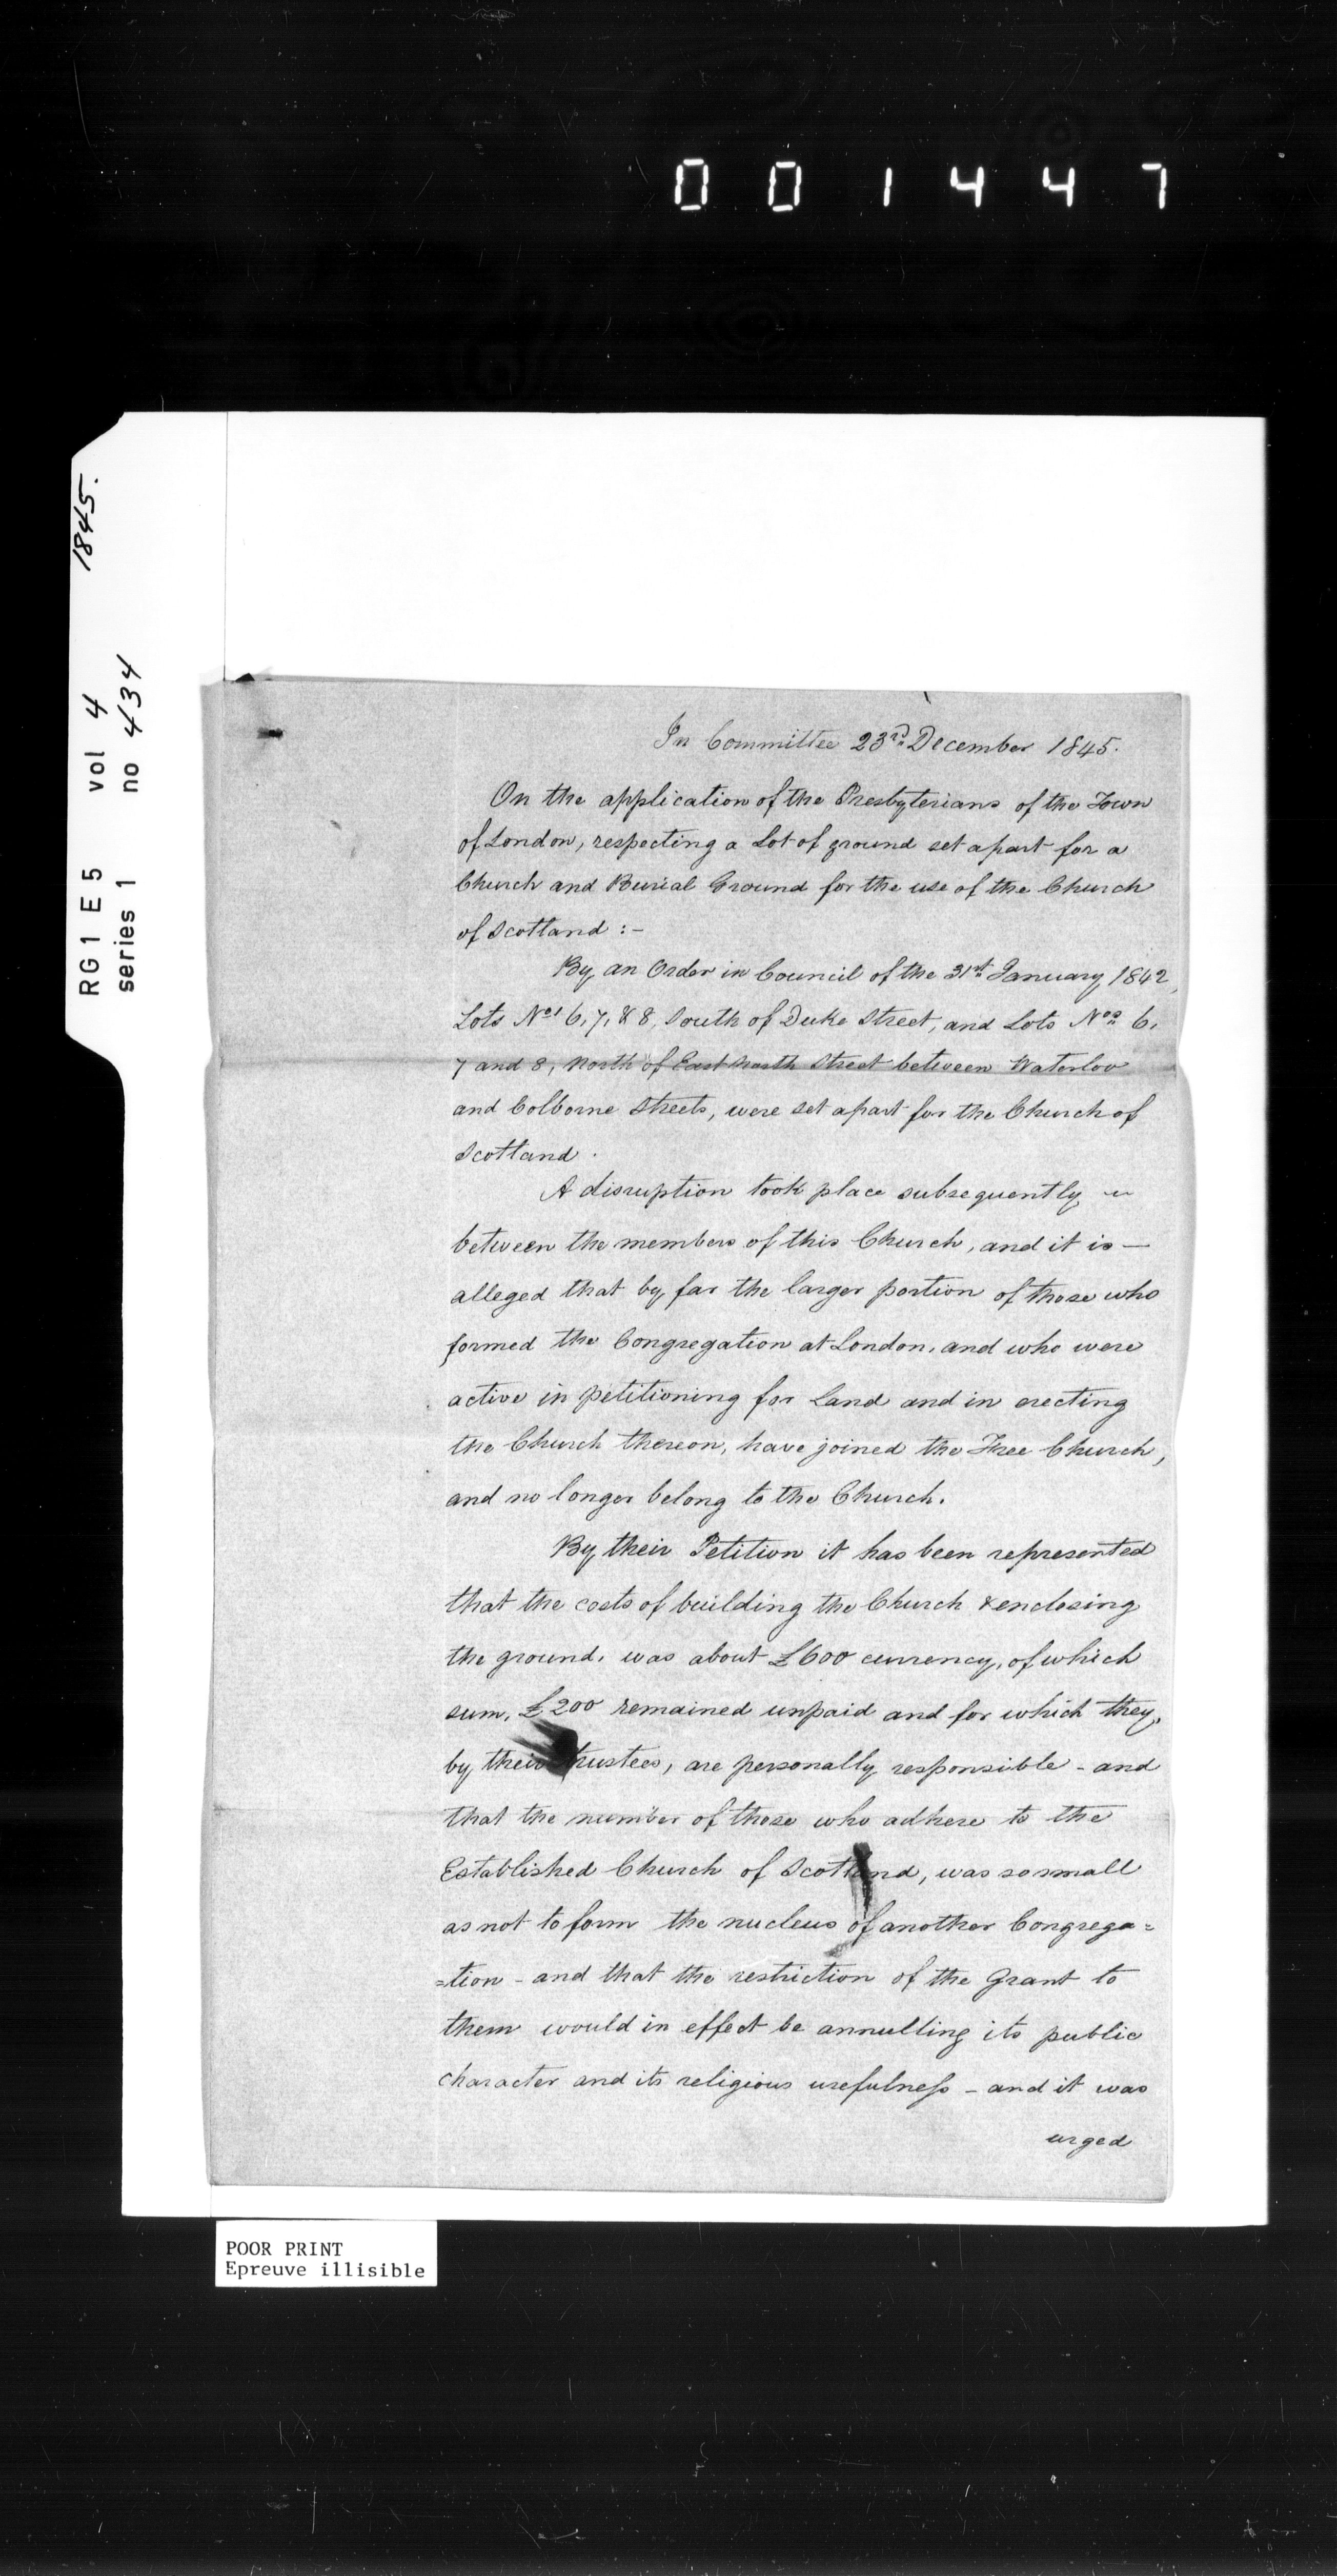 001447
1845.
RG1 E5 vol 4
series 1 no 434
In Committee 23rd December 1845.
On the application of the Presbyterians of the Town
of London, respecting a Lot of ground set apart for a
Church and Burial Ground for the use of the Church
of Scotland :-
By an Order in Council of the 31st January 1842,
Lots Nos 6, 7, & 8, South of Duke Street, and Lots Nos 6,
7 and 8, North of East North Street between Waterloo
and Colborne Streets, were set apart for the Church of
Scotland.
A disruption took place subsequently
between the members of this Church, and it is —
alleged that by far the larger portion of those who
formed the Congregation at London, and who were
active in petitioning for Land and in erecting
the Church thereon, have joined the Free Church,
and no longer belong to the Church.
By their Petition it has been represented
that the costs of building the Church & enclosing
the ground, was about £600 currency, of which
sum, £200 remained unpaid and for which they,
by their trustees, are personally responsible - and
that the number of those who adhere to the
Established Church of Scotland, was so small
as not to form the nucleus of another Congrega=
=tion - and that the restriction of the Grant to
them would in effect be annulling its public
character and its religious usefulness - and it was
urged
POOR PRINT
Epreuve illisible